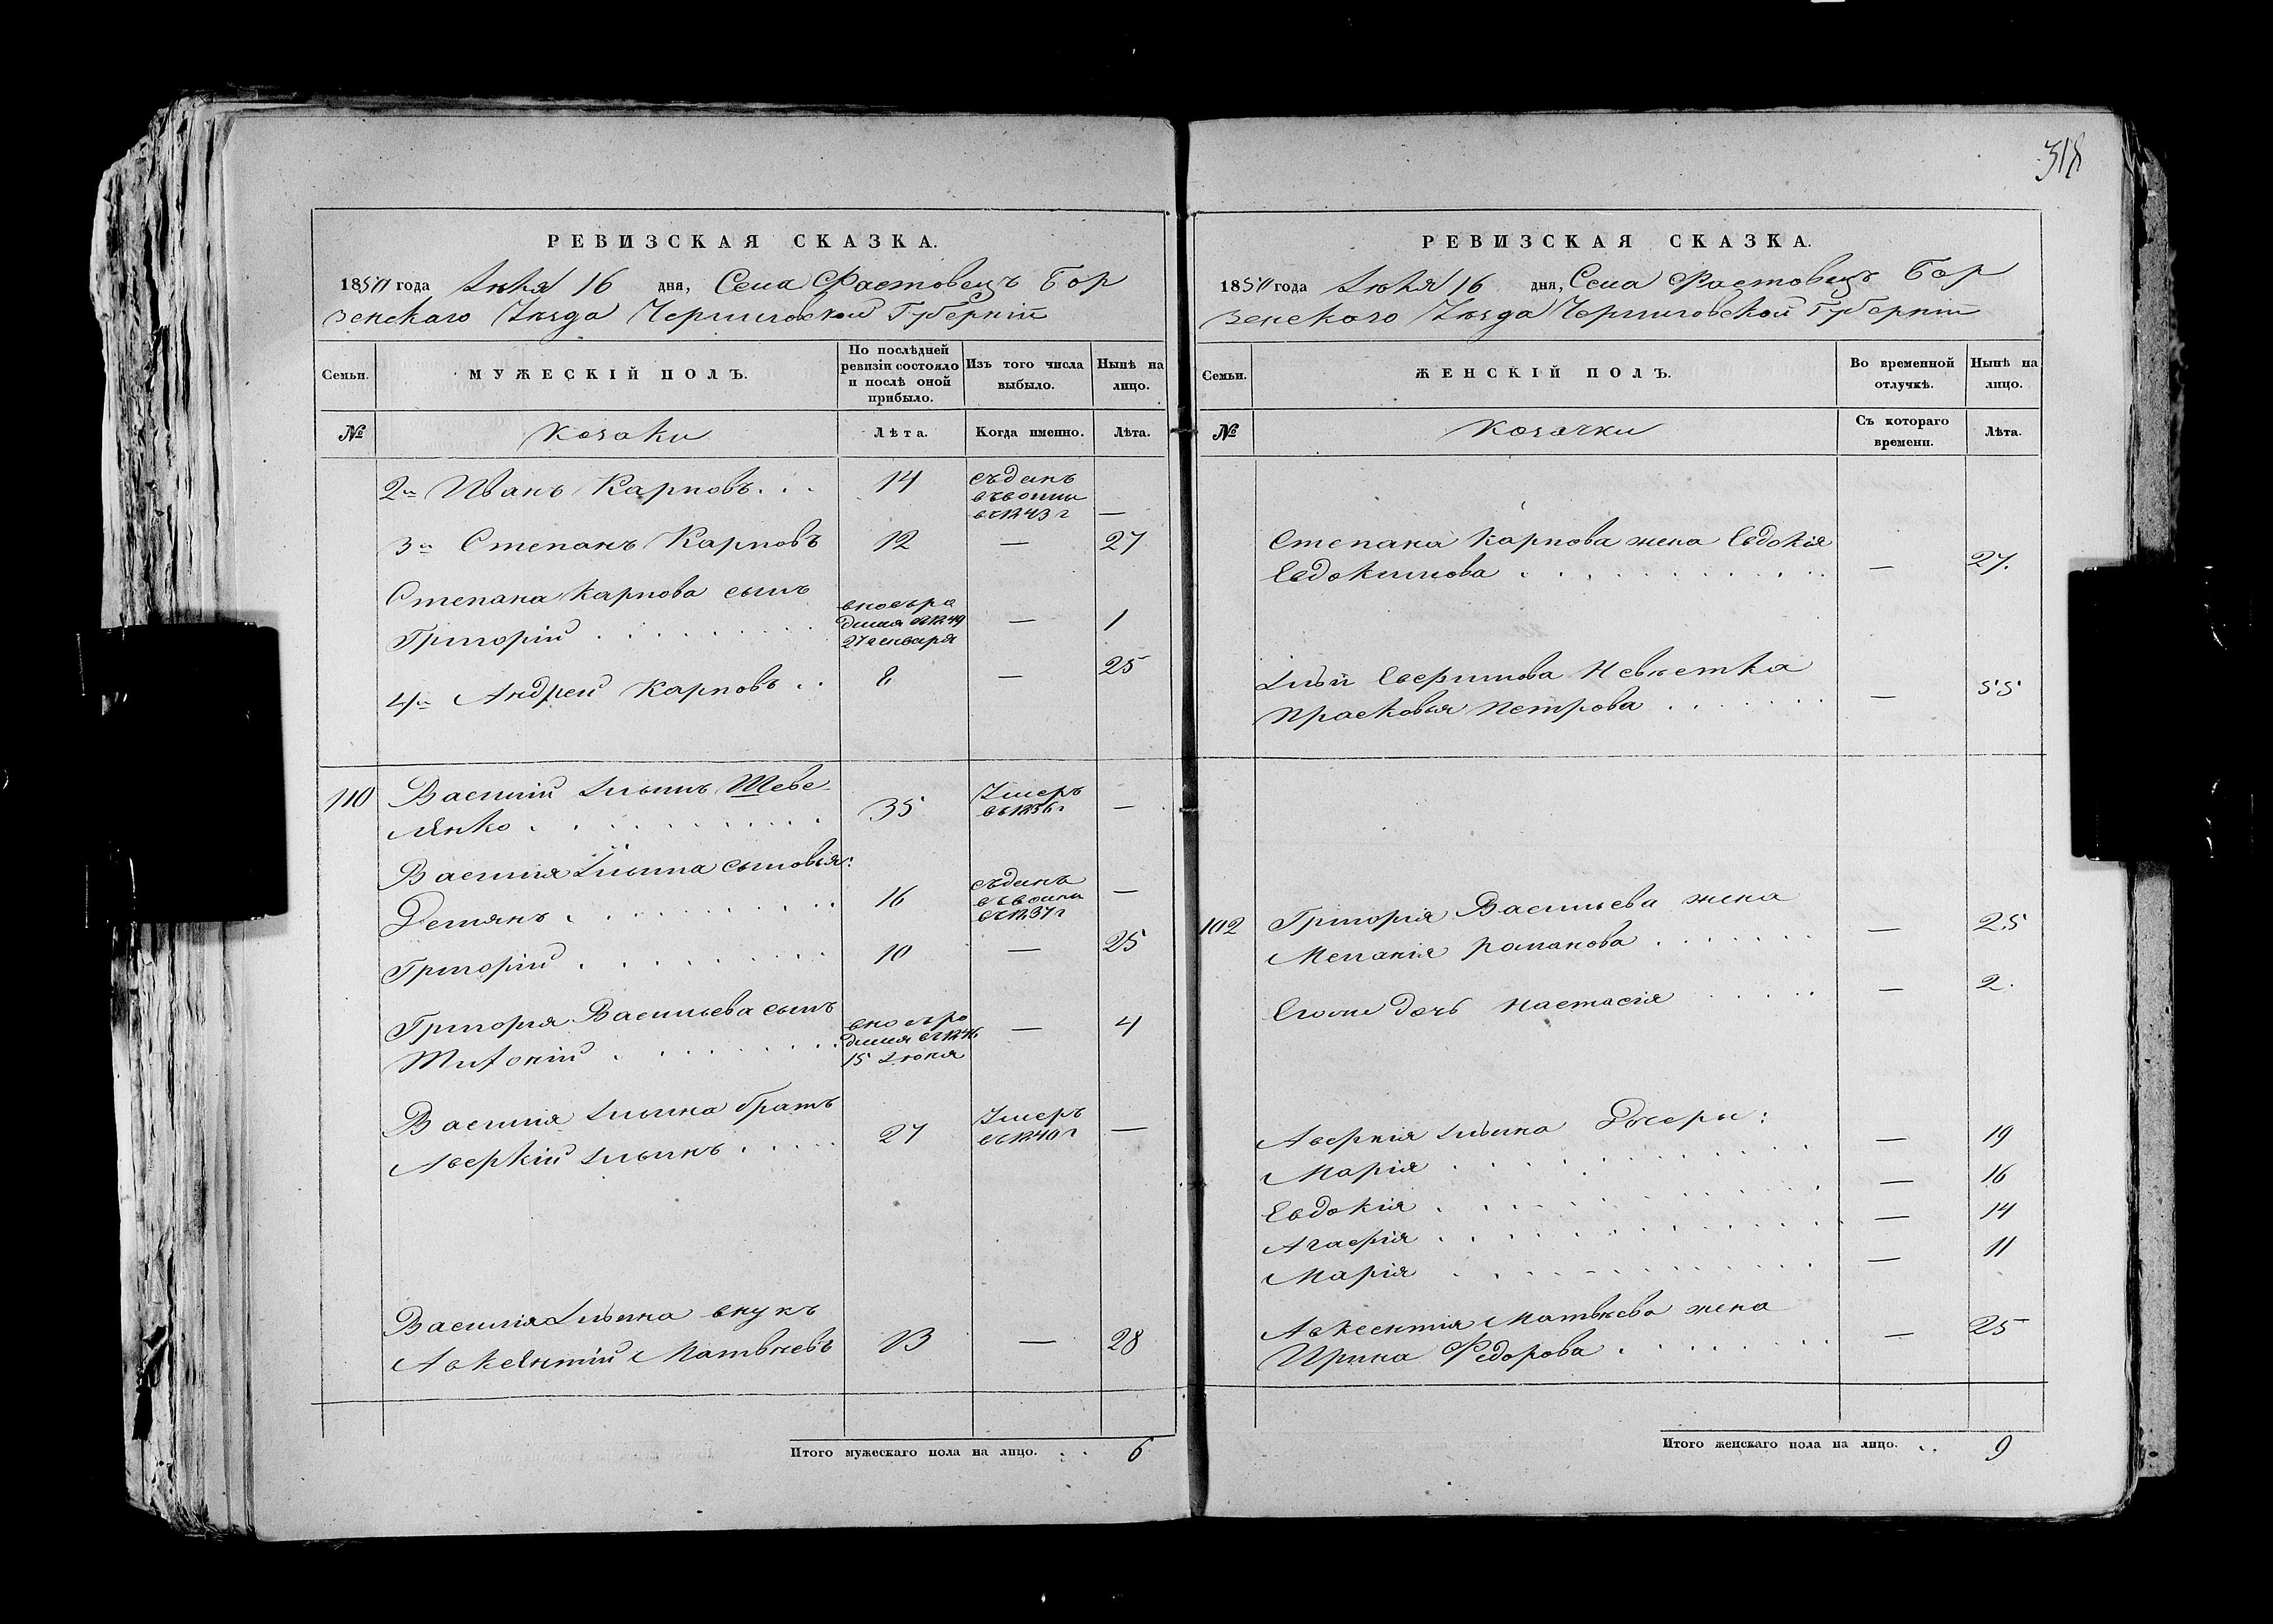 318
РЕВИЗСКАЯ СКАЗКА.
1850 года Іюня 16 дня, Села Фастовець Бор
зенскаго Уѣзда Черниговской Губерніи
Семьи.
МУЖЕСКІЙ ПОЛЪ.
По послѣдней ревизіи состояло и послѣ оной прибыло.
Изъ того числа выбыло.
Нынѣ на лицо.
№
Козаки
Лѣта.
Когда именно.
Лѣта.
2й Иванъ Карповъ . . . 14 съданъ въвоины въ1843 г —
3й Степанъ Карповъ 12 — 27
Степана Карпова сынъ
Григорій . . . . . . . вновьро дился въ1849 27 генваря — 1
4й Андрей Карповъ . . 8 — 25
110 Василий Ильинъ Шеве
лянко . . . . . . . . . 35 Умеръ въ1836 г —
Василія Ильина сыновья:
Демянъ . . . . . . . . 16 съданъ въвоины въ1837 г —
Григорій . . . . . . . . 10 — 25
Григорія Васильева сынъ
Тиѳоній . . . . . . . вновьро дился въ1846 15 Іюня — 4
Василія Ильина братъ
Аверкій Ильинъ . . . . 27 Умеръ въ1840 г —
Василія Ильина внукъ
Авксянтій Матвѣевъ 13 — 28
Итого мужескаго пола на лицо. . . 6
РЕВИЗСКАЯ СКАЗКА.
1850 года Іюня 16 дня, Села Фастовець Бор
зенскаго Уѣзда Черниговской Губерніи
Семьи.
ЖЕНСКІЙ ПОЛЪ.
Во временной отлучкѣ.
Нынѣ на лицо.
№
Козачки
Съ котораго времени.
Лѣта.
Степана Карпова жена Евдокія
Евдокимова . . . . . . . . . — 27.
Ильи Ефимова Невѣстка
Прасковья Петрова . . . . . . — 55
102 Григорія Васильева жена
Меланія Романова . . . . . . — 25
Егоже дочь Настасія . . . . . — 2.
Аверкія Ильина Дочери:
Марія . . . . . . . . . . — 19
Евдокія . . . . . . . . . . — 16
Агафія . . . . . . . . . . — 14
Марія . . . . . . . . . . — 11
Авксентія Матвѣева жена
Ирина Федорова . . . . . . . — 25
Итого женскаго пола на лицо. . . 9